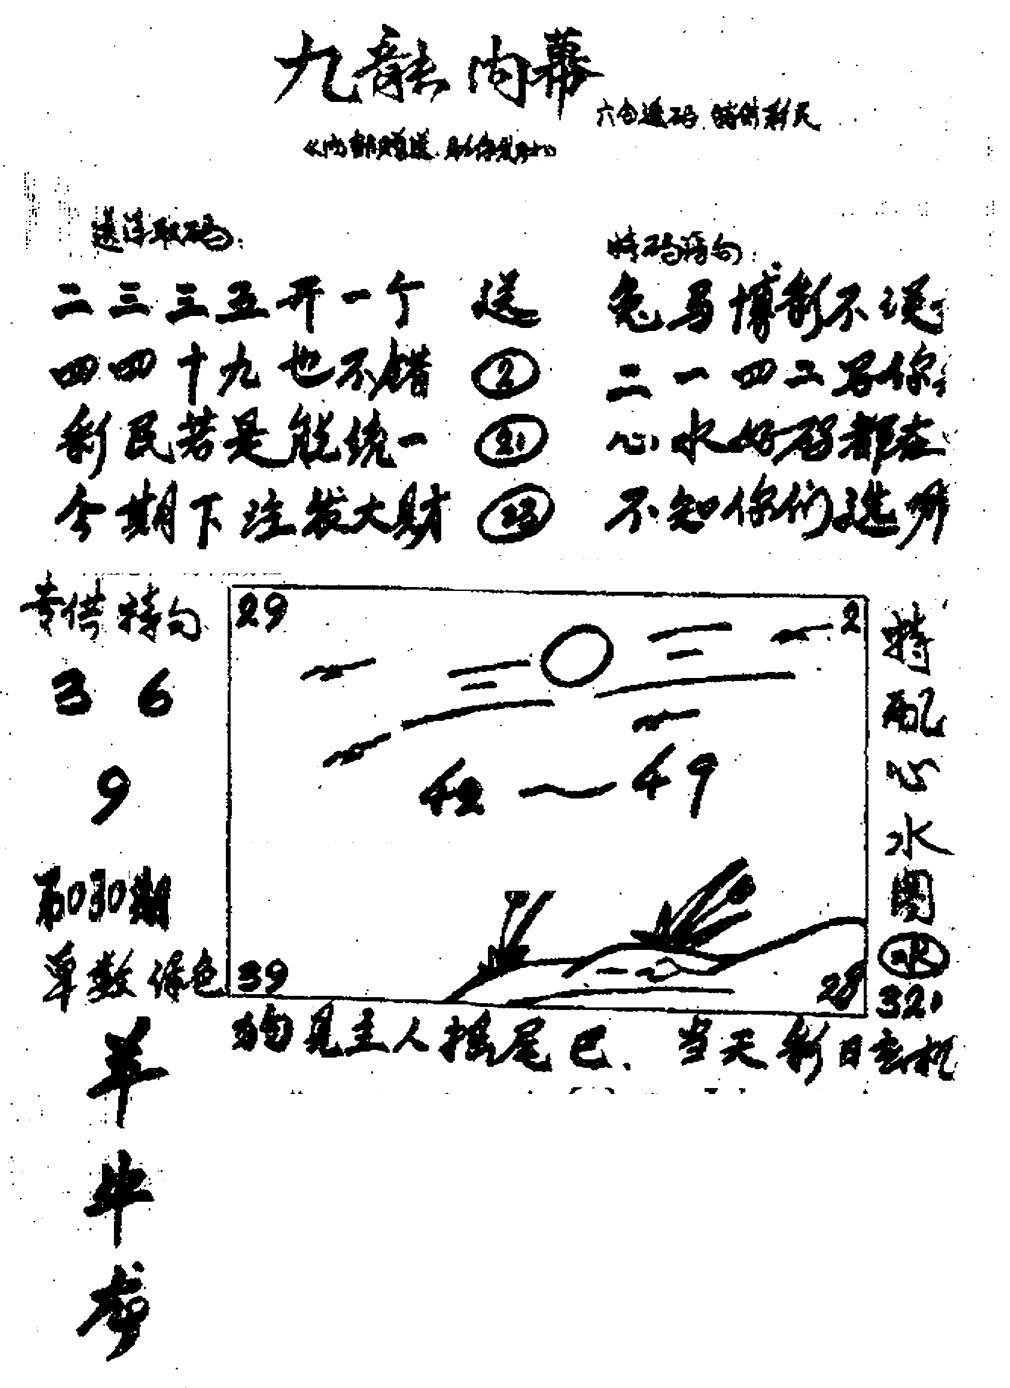 九龍内幕
六合透码 请供彩民
《内部赠送
送详取码:
特码诗句:
二三三五开一个 送
四四十九也不错 ②
彩民若是能统一 ㉛
今期下注发大财 ㉝
兔马博彩不
二一四二另你
心水好码都在
不知你们选哪
专供特句
3 6
9
第030期
单数保色
羊
牛
龙
29
2
42～49
39
28
特
配
心
水
图
水
321
狗见主人摇尾巴、当天彩日玄机